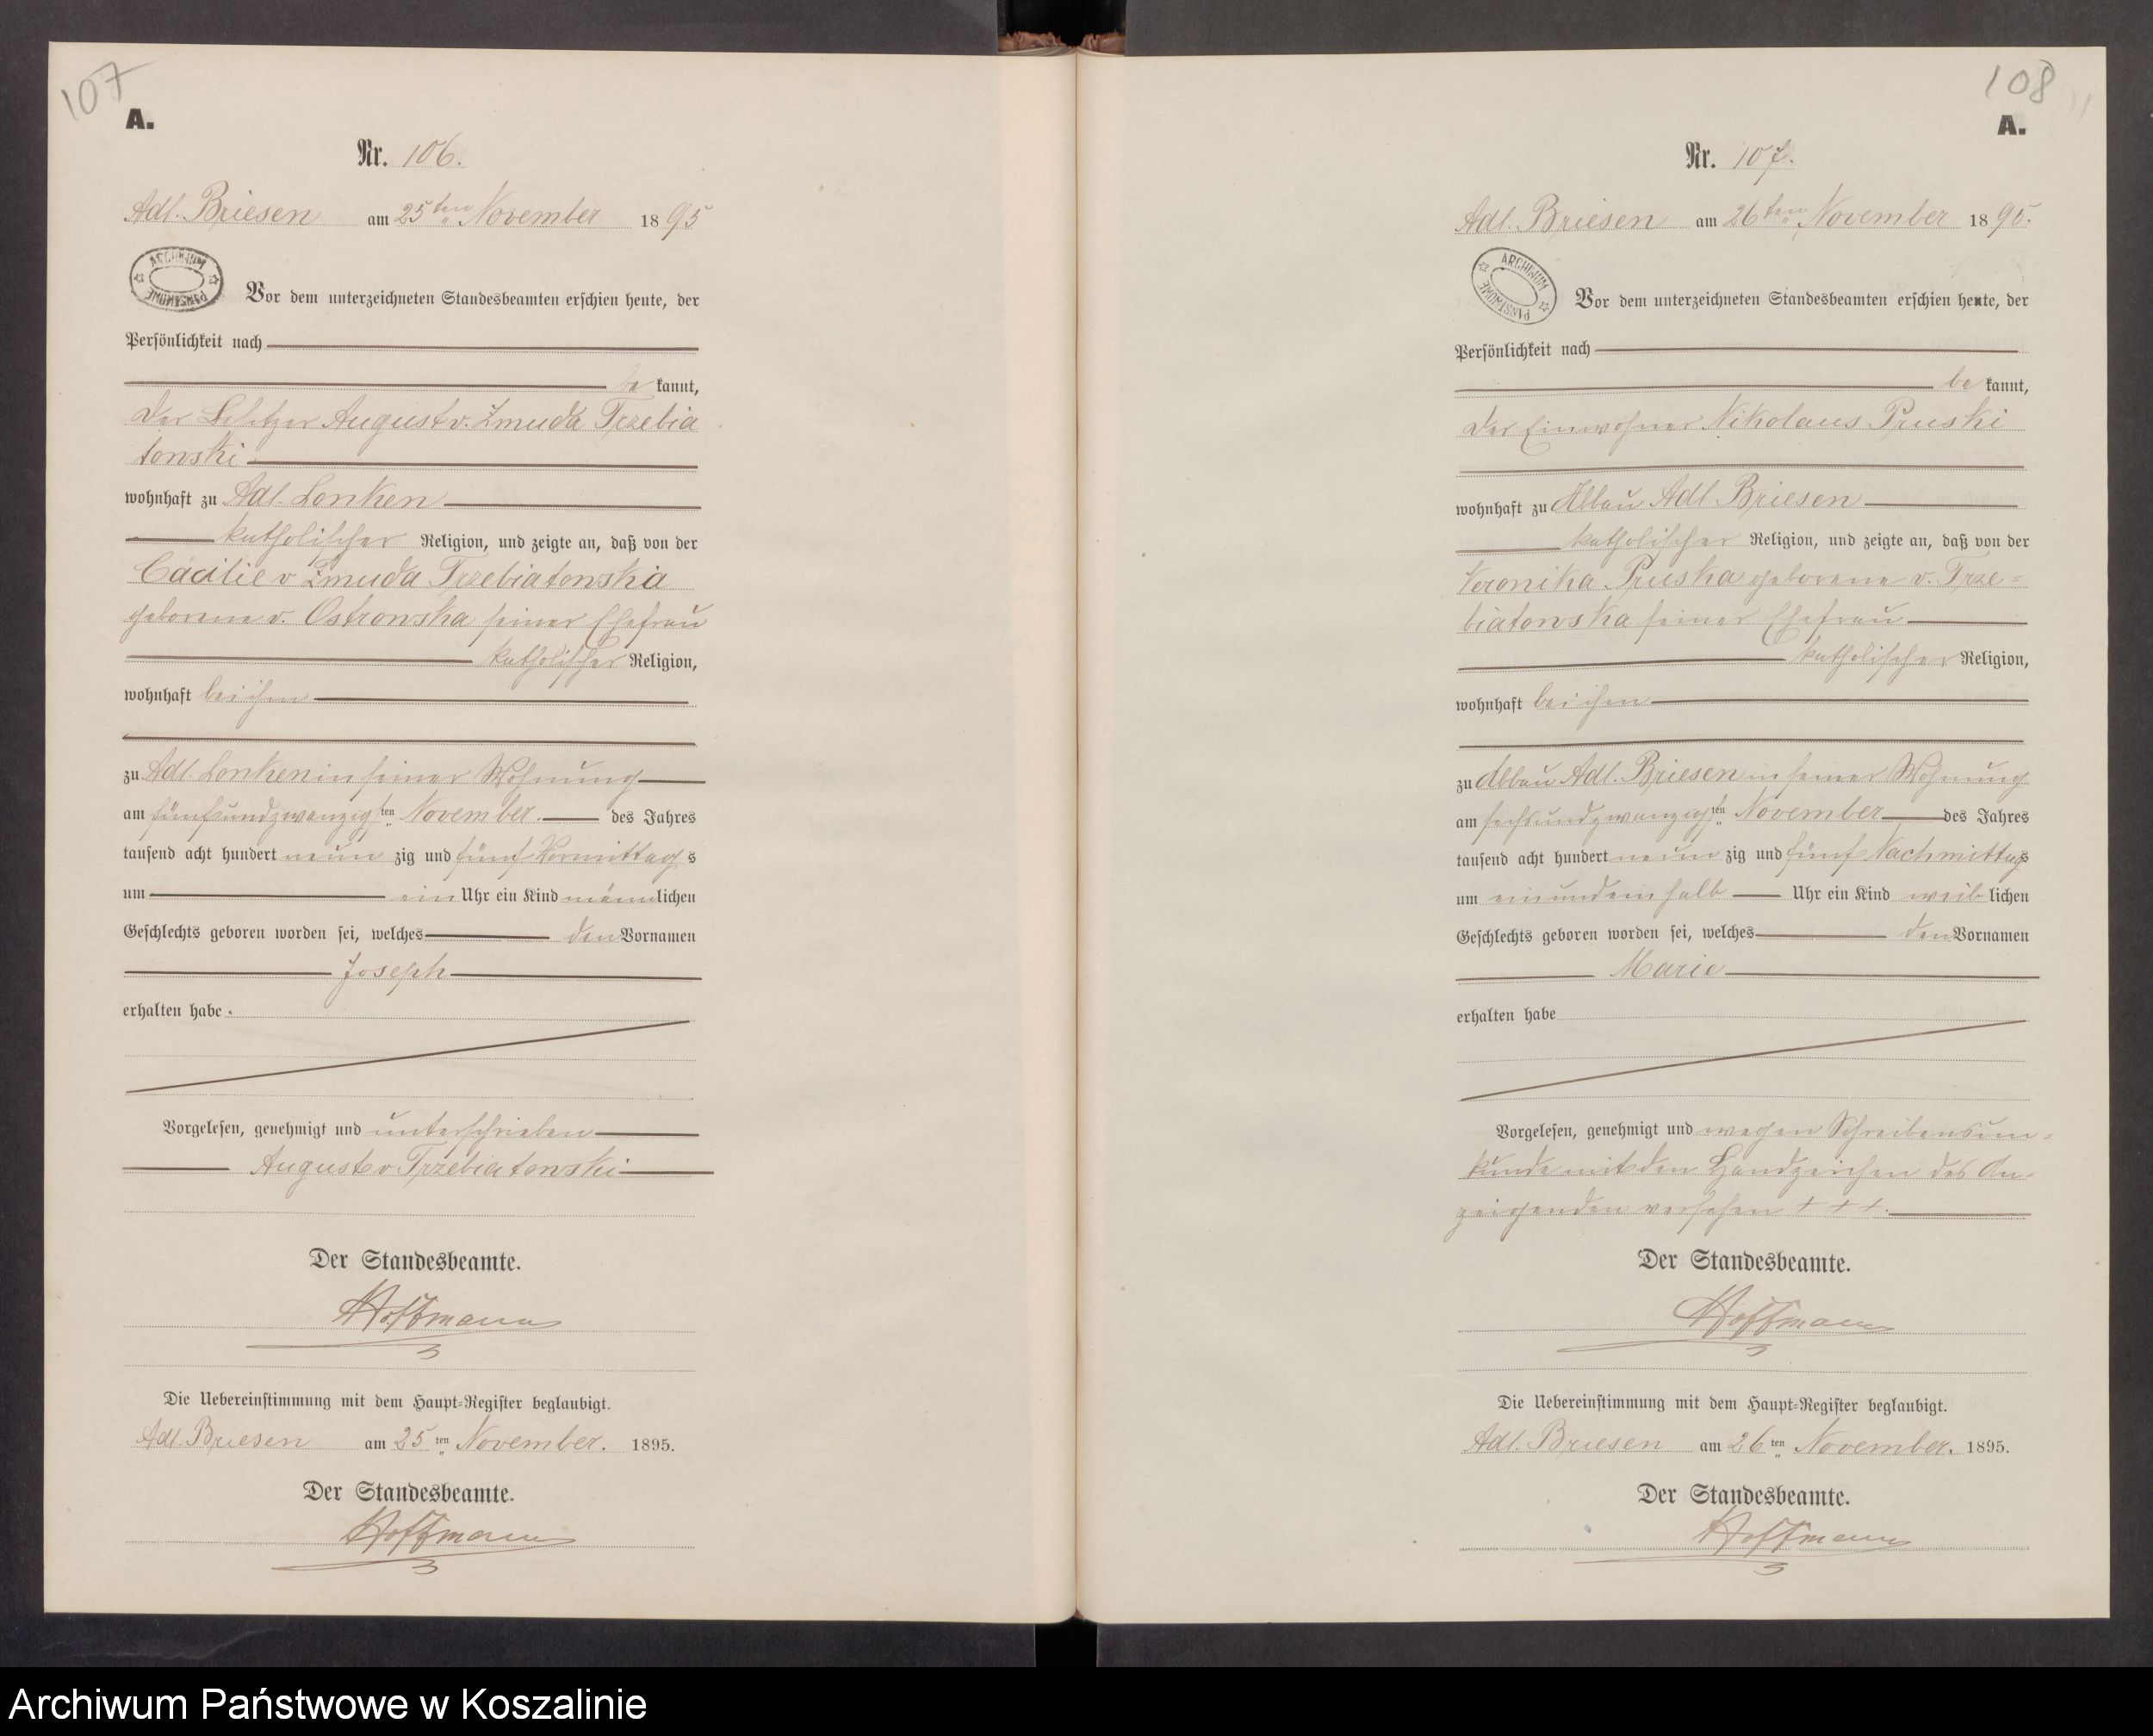 107
A.
Nr. 106.
Adl. Briesen am 25ten November 1895
ARCHIWUM PAŃSTWOWE
Vor dem unterzeichneten Standesbeamten erschien heute, der
Persönlichkeit nach
be kannt,
der Besitzer August v. Zmuda Trzebia
towski
wohnhaft zu Adl. Lonken
katholischer Religion, und zeigte an, daß von der
Cäcilie v Zmuda Trzebiatowska
geborene v. Ostrowska seiner Ehefrau
katholischer Religion,
wohnhaft bei ihm
zu Adl. Lonken in seiner Wohnung
am fünfundzwanzigsten November des Jahres
tausend acht hundert neun zig und fünf Vormittags
um ein Uhr ein Kind männlichen
Geschlechts geboren worden sei, welches den Vornamen
Joseph
erhalten habe.
Vorgelesen, genehmigt und unterschrieben
August v Trzebiatowski
Der Standesbeamte.
Hoffmann
Die Uebereinstimmung mit dem Haupt-Register beglaubigt.
Adl. Briesen am 25ten November. 1895.
Der Standesbeamte.
Hoffmann
108
A.
Nr. 107.
Adl. Briesen am 26ten November 1895.
ARCHIWUM PAŃSTWOWE
Vor dem unterzeichneten Standesbeamten erschien heute, der
Persönlichkeit nach
be kannt,
der Einwohner Nikolaus Pruski
wohnhaft zu Abbau Adl. Briesen
katholischer Religion, und zeigte an, daß von der
Veronika Pruska geborene v. Trze=
biatowska seiner Ehefrau
katholischer Religion,
wohnhaft bei ihm
zu Abbau Adl. Briesen in seiner Wohnung
am sechsundzwanzigsten November des Jahres
tausend acht hundert neun zig und fünf Nachmittags
um ein und ein halb Uhr ein Kind weib lichen
Geschlechts geboren worden sei, welches den Vornamen
Marie
erhalten habe
Vorgelesen, genehmigt und wegen Schreibensun=
kunde mit den Handzeichen des An
zeigenden versehen + + +.
Der Standesbeamte.
Hoffmann
Die Uebereinstimmung mit dem Haupt-Register beglaubigt.
Adl. Briesen am 26ten November. 1895.
Der Standesbeamte.
Hoffmann
Archiwum Państwowe w Koszalinie